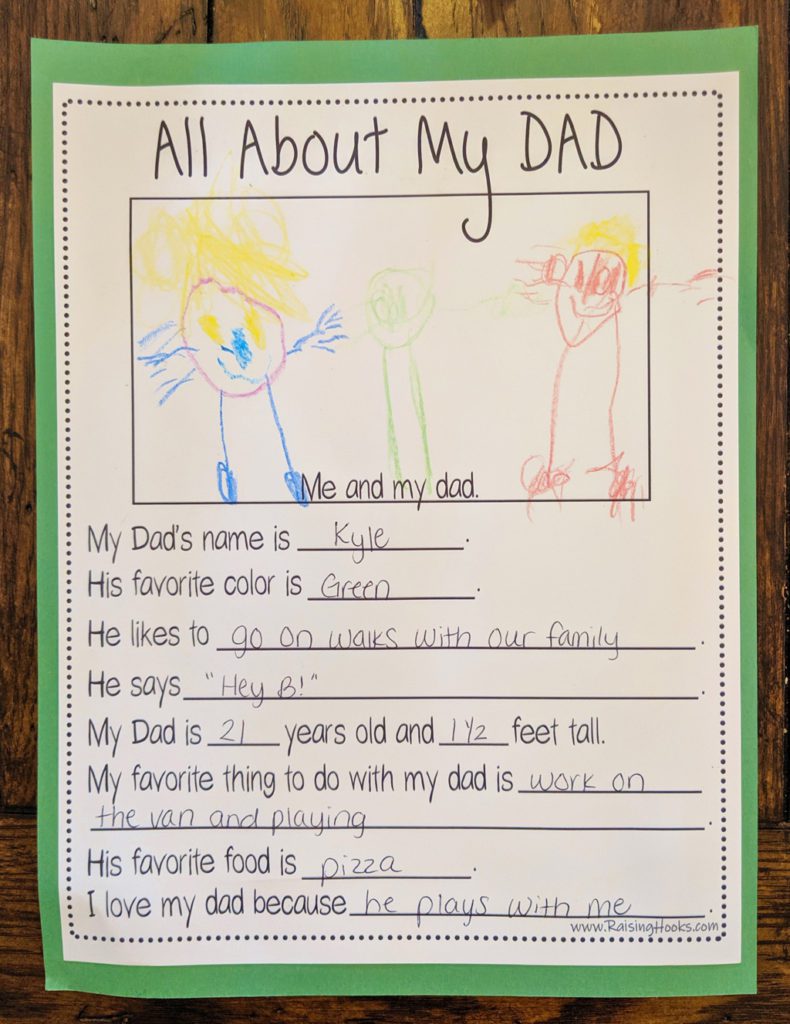 All About My DAD
Me and my dad.
My Dad's name is Kyle.
His favorite color is Green.
He likes to go on walks with our family.
He says "Hey B!".
My Dad is 21 years old and 1 1/2 feet tall.
My favorite thing to do with my dad is work on
the van and playing.
His favorite food is pizza.
I love my dad because he plays with me.
www.RaisingHooks.com